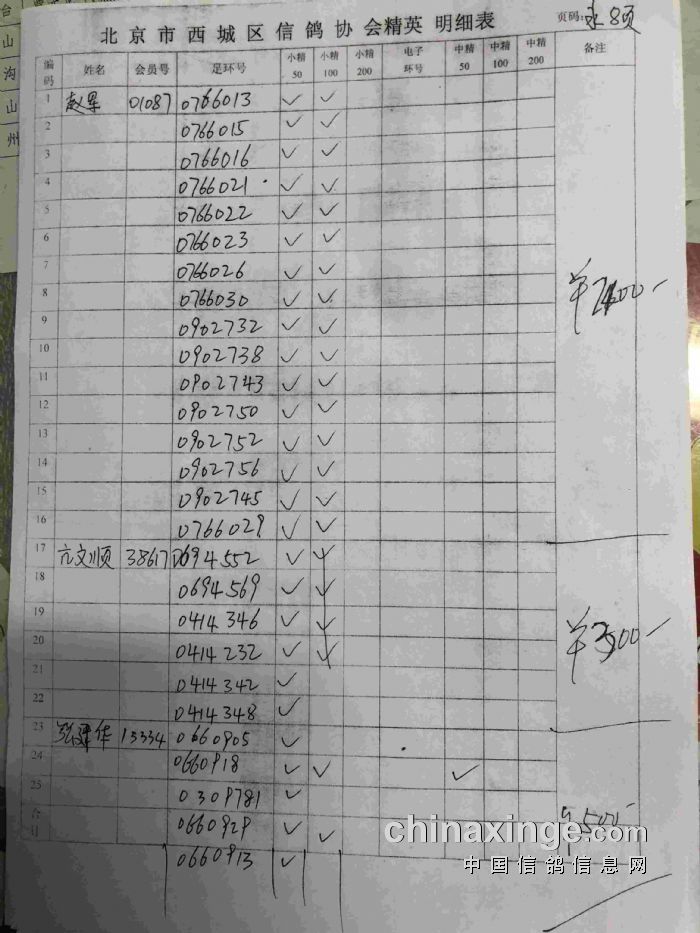 台
山
沟
山
州
北京市西城区信鸽协会精英 明细表
页码: 8页
编码 姓名 会员号 足环号 小精50 小精100 小精200 电子环号 中精50 中精100 中精200 备注
1 赵军 01087 0766013 ✓ ✓
2 0766015 ✓ ✓
3 0766016 ✓ ✓
4 0766021 ✓ ✓
5 0766022 ✓ ✓
6 0766023 ✓ ✓
7 0766026 ✓ ✓
8 0766030 ✓ ✓
9 0902732 ✓ ✓
10 0902738 ✓ ✓
11 0902743 ✓ ✓
12 0902750 ✓ ✓
13 0902752 ✓ ✓
14 0902756 ✓ ✓
15 0902745 ✓ ✓
16 0766029 ✓ ✓
17 亢文顺 38617 0694552 ✓ ✓
18 0694569 ✓ ✓
19 0414346 ✓ ✓
20 0414232 ✓ ✓
21 0414342 ✓
22 0414348 ✓
23 张建华 13334 0660905 ✓
24 0660918 ✓ ✓ ✓
25 0309781 ✓
合计 0660929 ✓ ✓
0660913 ✓
500-
chinaxinge.com
中国信鸽信息网